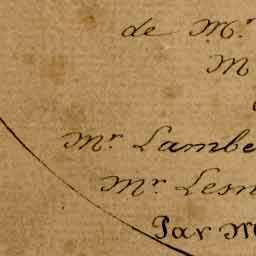 de Mr.
M
Mr. Lambe
Mr. Lesn
Par M